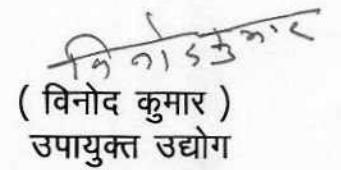 विनोद कुमार
( विनोद कुमार )
उपायुक्त उद्योग